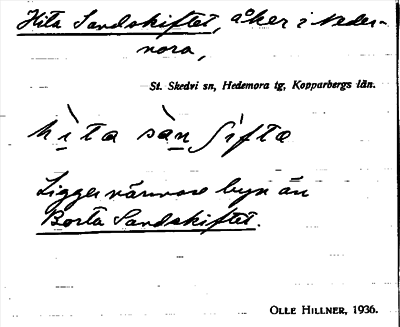 Hita Sandskiftet, åker i Neder-
nora,
St. Skedvi sn, Hedemora tg, Kopparbergs län.
hìta sàn ʃìfta
Ligger närmare byn än
Borta Sandskiftet.
OLLE HILLNER, 1936.